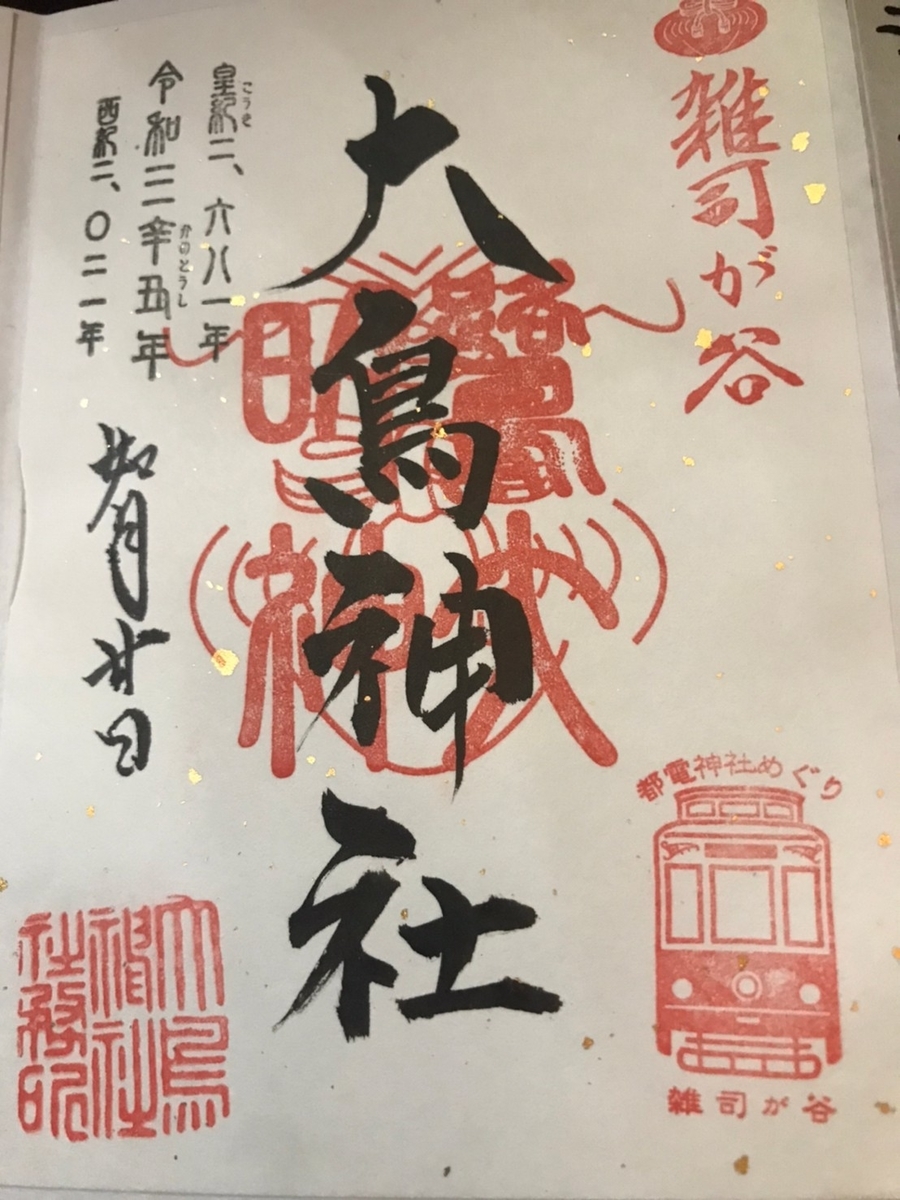 雑司が谷
大鳥神社
こうき
皇紀二、六八一年
かのとうし
令和三辛丑年
西紀二、〇二一年
如月廿日
都電神社めぐり
雑司が谷
大鳥
神社
社務印